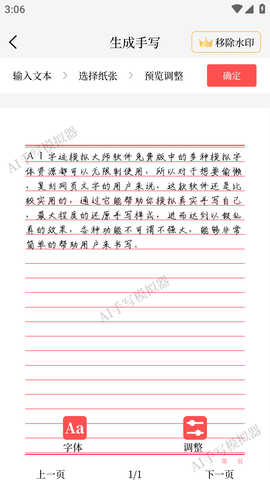 3:06
生成手写
移除水印
输入文本 > 选择纸张 > 预览调整
确定
AI字迹模拟大师软件免费版中的多种模拟字
体资源都可以无限制使用，所以对于想要偷懒
、复刻网页文字的用户来说，这款软件还是比
较实用的，通过它能帮助你模拟真实手写自己
，最大程度的还原手写样式，进而达到以假乱
真的效果，各种功能不可谓不强大，能够非常
简单的帮助用户来书写。
AI手写模拟器
AI手写模拟器
AI手写模拟器
第 页
Aa
字体
调整
上一页
1/1
下一页